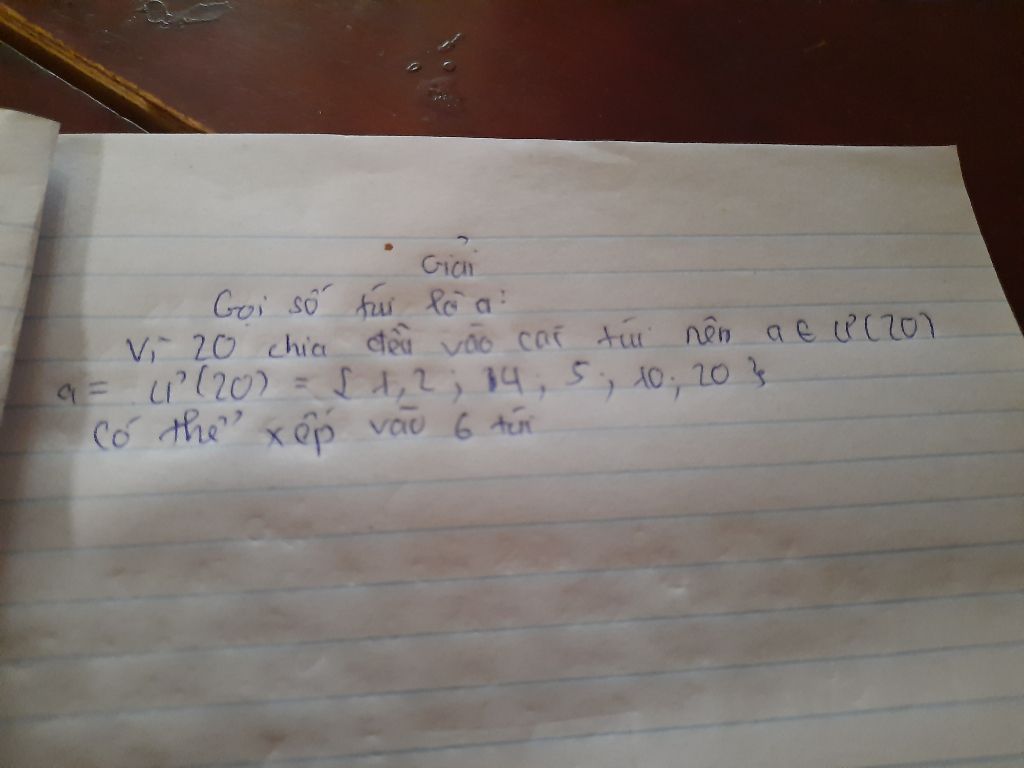 Giải
Gọi số túi là a:
Vì 20 chia đều vào các túi nên a ∈ Ư(20)
a = Ư(20) = { 1, 2 ; 4 ; 5 ; 10 ; 20 }
Có thể xếp vào 6 túi